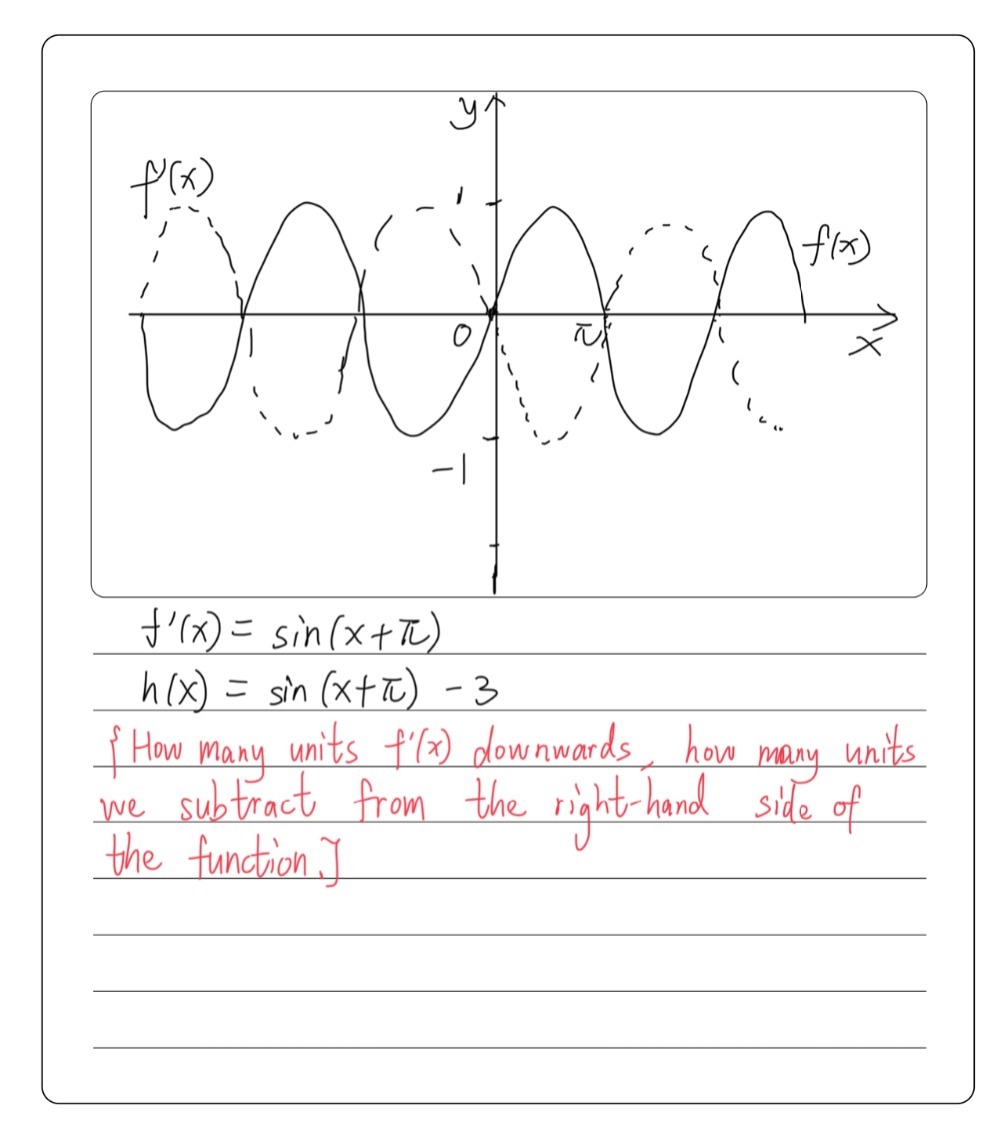 y
f'(x)
1
f(x)
0
π
x
-1
f'(x) = sin(x+π)
h(x) = sin(x+π) - 3
{How many units f'(x) downwards, how many units
we subtract from the right-hand side of
the function.]